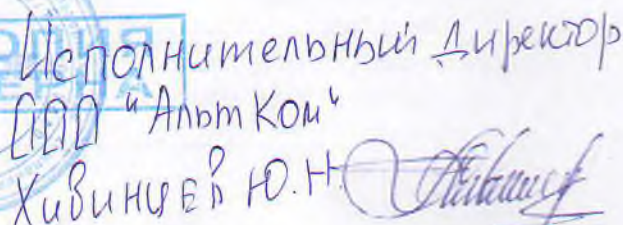 КОПИЯ
ВЕРНА
Исполнительный директор
ООО "АльтКом"
Хивинцев Ю.Н.